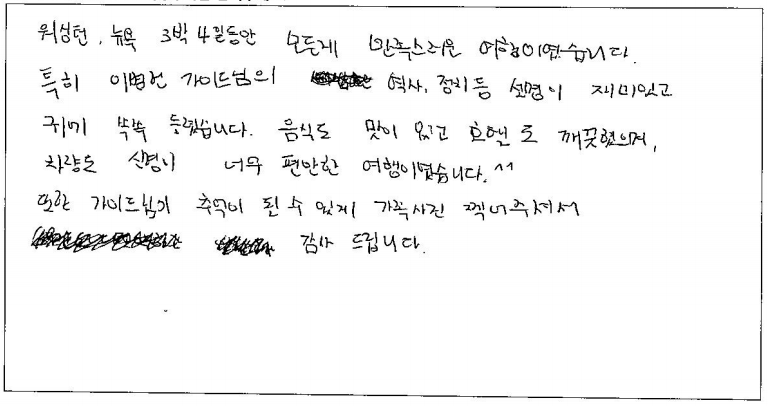 워싱턴, 뉴욕 3박 4일동안 모든게 만족스러운 여행이였습니다.
특히 이병헌 가이드님의 역사, 정치등 설명이 재미있고
귀에 쏙쏙 들렸습니다. 음식도 맛이 있고 호텔도 깨끗했으며,
차량도 신형이 너무 편안한 여행이였습니다.^^
또한 가이드님이 추억이 될 수 있게 가족사진 찍어주셔서
감사 드립니다.